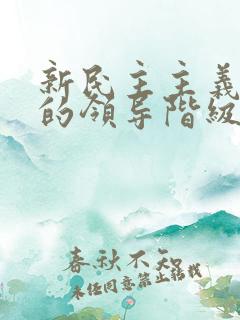 新民主主義
的領导階級
春秋不知
未经同意禁止转载